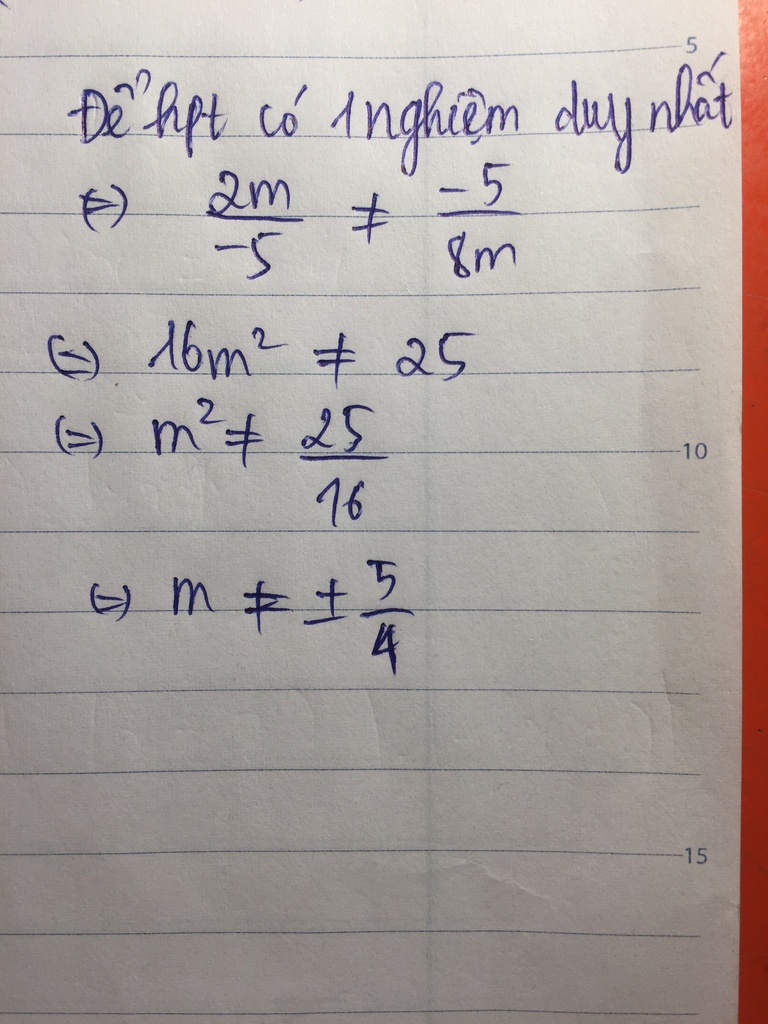 5
Để hpt có 1 nghiệm duy nhất
(=) 2m/-5 ≠ -5/8m
(=) 16m² ≠ 25
(=) m² ≠ 25/16
10
(=) m ≠ ± 5/4
15